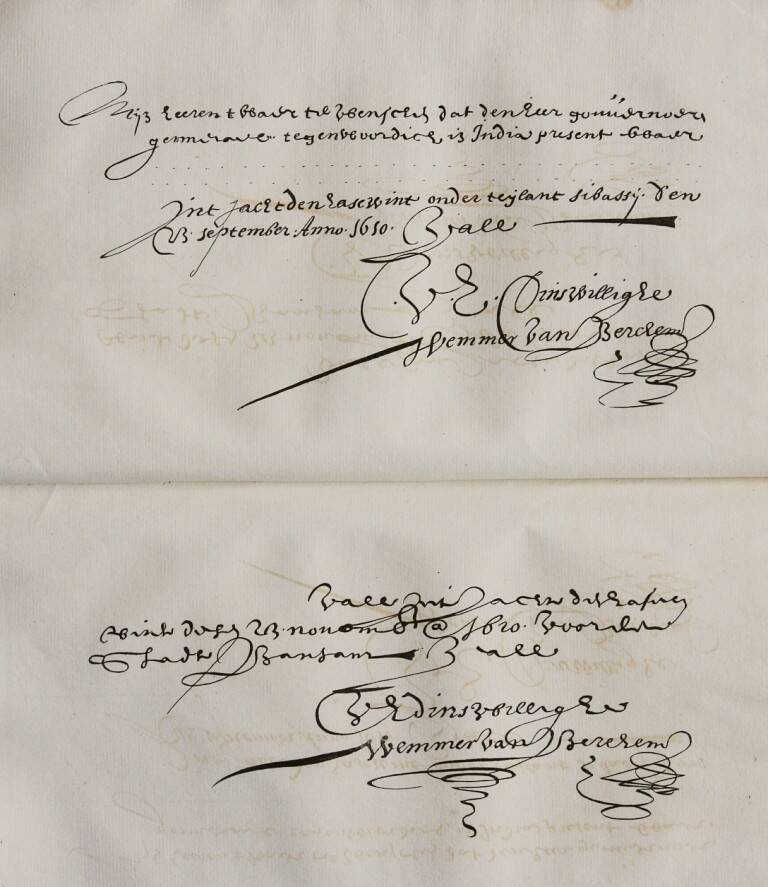 Mijn heeren twaer te wenschen dat den heer gouverneur
generael tegenwoordich in India present waer
Int Jacht den hasewint onder teylant sibassy. den
23. september. Anno. 1610. Vall
V. E. Dienswillighe
Wemmer van Berchem
Vall Int Jacht d'hase
wint desen 23. novemb @ 1610. voorde
Stadt Bantam Vall
VE dinswillighe
Wemmer van Berchem